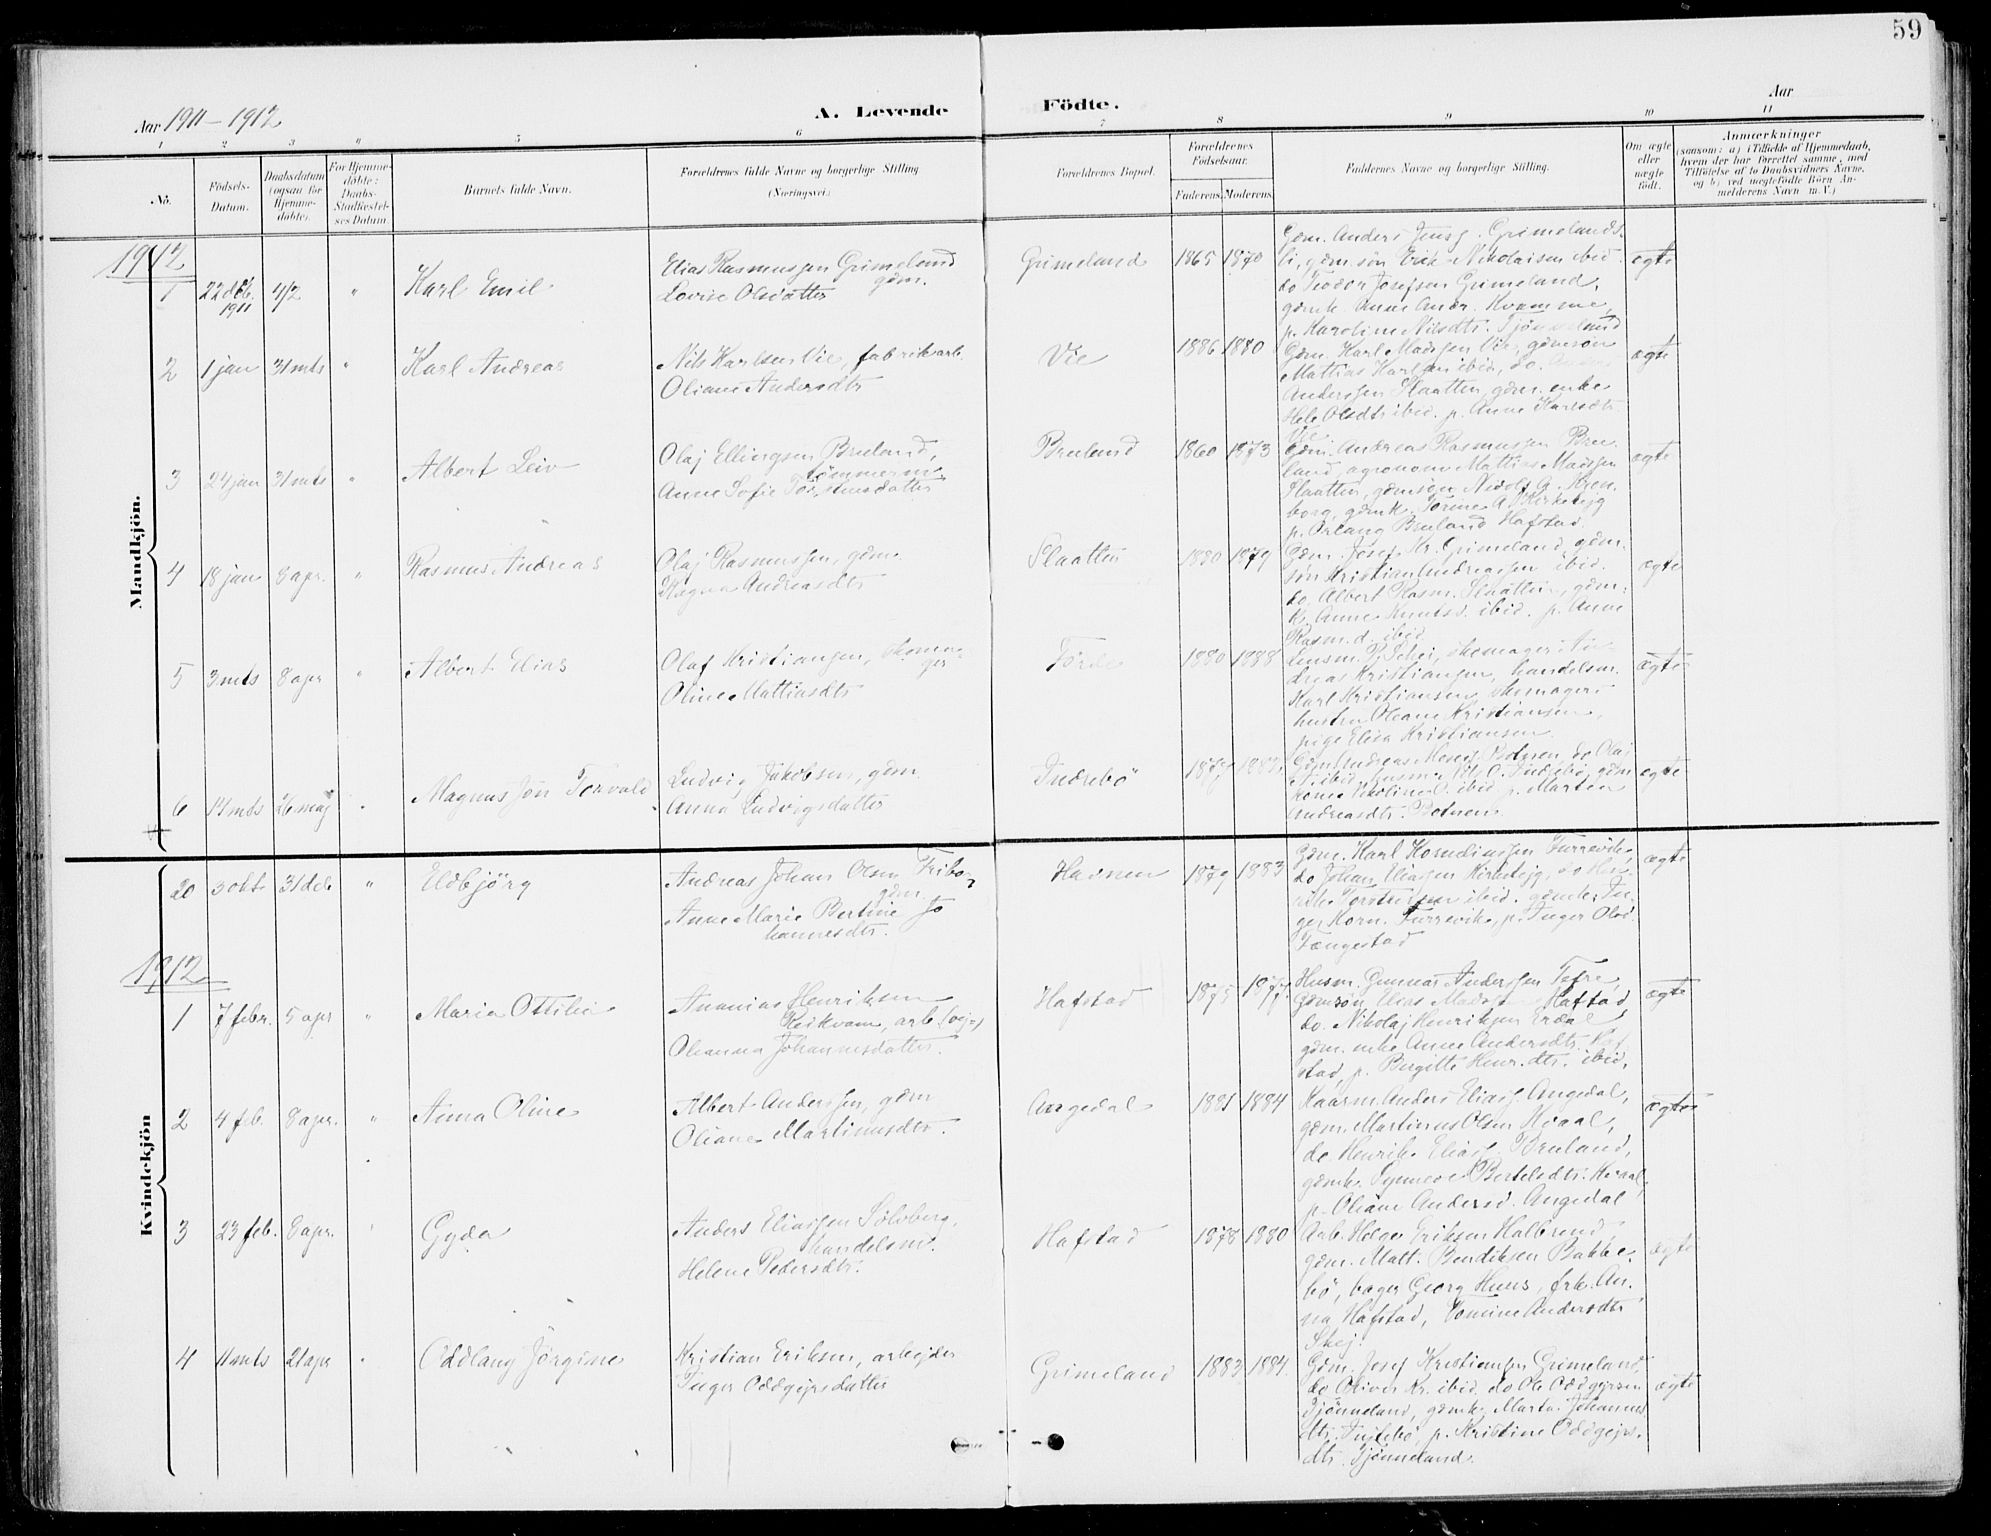 59
Aar 1911-1912
A. Levende Födte.
Aar
1 2 3 " 5 6 7 8 9 10 11
No.
Födsels-Datum.
Daabsdatum (ogsaa for Hjemmedöbte).
For Hjemmedöbte: Daabs-Stadfæstelses Datum.
Barnets fulde Navn.
Forældrenes fulde Navne og borgerlige Stilling (Næringsvei.)
Forældrenes Bopæl.
Forældrenes Födselsaar.
Faderens. Moderens.
Faddernes Navne og borgerlige Stilling.
Om ægte eller uægte födt.
Anmærkninger
(saasom: a) i Tilfælde af Hjemmedaab,
hvem der har forrettet samme, med
Tilföielse af to Daabsvidners Navne,
og b) ved uægtefödte Börn Anmelderens Navn m. V.)
Mandkjön.
1912
1 22 deb. 1911 4/2 " Karl Emil
Elias Rasmussen Grimelund gdm.
Lovise Olsdatter
Grimeland 1865 1870
Gdm. Anders Jensg. Grimelands-
li, gdm. søn Erik Nikolaisen ibid.
do Teodor Josefsen Grimeland,
gdmk. Anne Andr. Kvamme,
p. Karoline Nilsdtr. Tjönneland
ægte
2 1 jan 31 mts " Karl Andreas
Nils Karlsen Vie, fabrikarb.
Oliane Andersdtr
Vie 1886 1880
Gdm. Karl Madssen Vie, gdmsøn
Mattias Karlsen ibid, do.
Anderssen Slaatten, gdm. enke
Hele Olsdtr ibid. p. Anne Karlsdtr
Vie.
ægte
3 24 jan 31 mts " Albert Leiv
Olaj Ellingsen Bruland, tømmerm.
Anne Sofie Torstensdatter
Bruland 1860 1873
Gdm. Andreas Rasmussen Bru-
land, agronom Mattias Madssen
Slaatten, gdmsøn Nikols A. Kron-
borg, gdmk. Torine A. Kirkebejg
p. Erlang Bruland Hafstad.
ægte
4 18 jan 8 apr. " Rasmus Andreas
Olaj Rasmussen, gdm
Magna Andreasdtr
Slaatten 1880 1879
Gdm. Josef Kr. Grimeland, gdm.
søn Kristian Andreassen ibid.
do. Albert Rasm. Slaatten, gdm.
k. Anne Knutsd. ibid. p. Anne
Rasm.d. ibid
ægte
5 3 mts 8 apr " Albert Elias
Olaf Kristiansen, skomager
Oline Mattiasdtr
Førde 1880 1888
Lensm. P. Schei, skomager An-
dreas Kristiansen, handelsm.
Karl Kristiansen, skomager
hustru Oliane Kristiansen,
pige Elisa Kristiansen
ægte
6 14 mts 26 maj " Magnus Jön Torvald
Ludvig Jakobsen, gdm.
Anna Ludvigsdatter
Indrebö 1877
Gdm Andreas Botnen, do Olaj
kone Nikoline ibid. p. Marten
Andreasdtr. Botnen.
ægte
Kvindekjön
20 3 okt 31 deb " Eldbjörg
Andreas Johan Olsen Tribo, gdm
Anne Marie Bertine Jo
hannesdtr.
Havnen 1879 1883
Gdm. Karl Kornelinssen Furrevik,
do Johan Eliassen Kirkebejg, do Hen-
rik Torstensen ibid. gdmk. In-
ger Korn. Furrevik, p. Inger Olsd
Fængestad
ægte
1912
1 7 febr. 5 apr " Maria Ottilie
Ananias Henriksen
Reikvam, arb. (vej-)
Oleanna Johannesdatter.
Hafstad 1875 1877
Husm. Gunnar Anderssen Tefre,
Gdmsön Elias Madssen Hafstad,
do. Nikolaj Henriksen Erdal
gdm. enke Anne Andersdtr. Haf
stad, p. Birgitte Henr.dtr. ibid.
ægte
2 4 feb. 8 apr. " Anna Oline
Albert Anderssen, gdm
Oliane Martinusdtr.
Angedal 1881 1884
Kaarm. Anders Eliass. Angedal,
gdm. Martinus Olsen Hvaal,
do. Henrik Eliass. Bruland,
gdmk. Synneve Bertelsdtr. Hvaal,
p. Oliane Andersd. Angedal
ægte
3 23 feb. 8 apr. " Gyda
Anders Eliassen Solvberg,
handelsm.
Helene Pedersdtr.
Hafstad 1878 1880
Arb. Helge Eriksen Halbrend,
gdm. Matt. Bendiksen Bakke-
bö, bager Georg Huus, frk. An-
na Hafstad, Tomine Andersdtr
Skej.
ægte
4 11 mts 21 apr " Oddlaug Jörgine
Kristian Eriksen, arbejder
Inger Oddgejrsdatter
Grimeland 1883 1884.
Gdm. Josef Kristiansen Grimeland,
do Oliver Kr. ibid. do Ole Oddgejrsen
Tjönneland, gdmk. Marta Johannes
dtr. p. Kristine Oddgejrs-
dtr. Tjönneland.
ægte